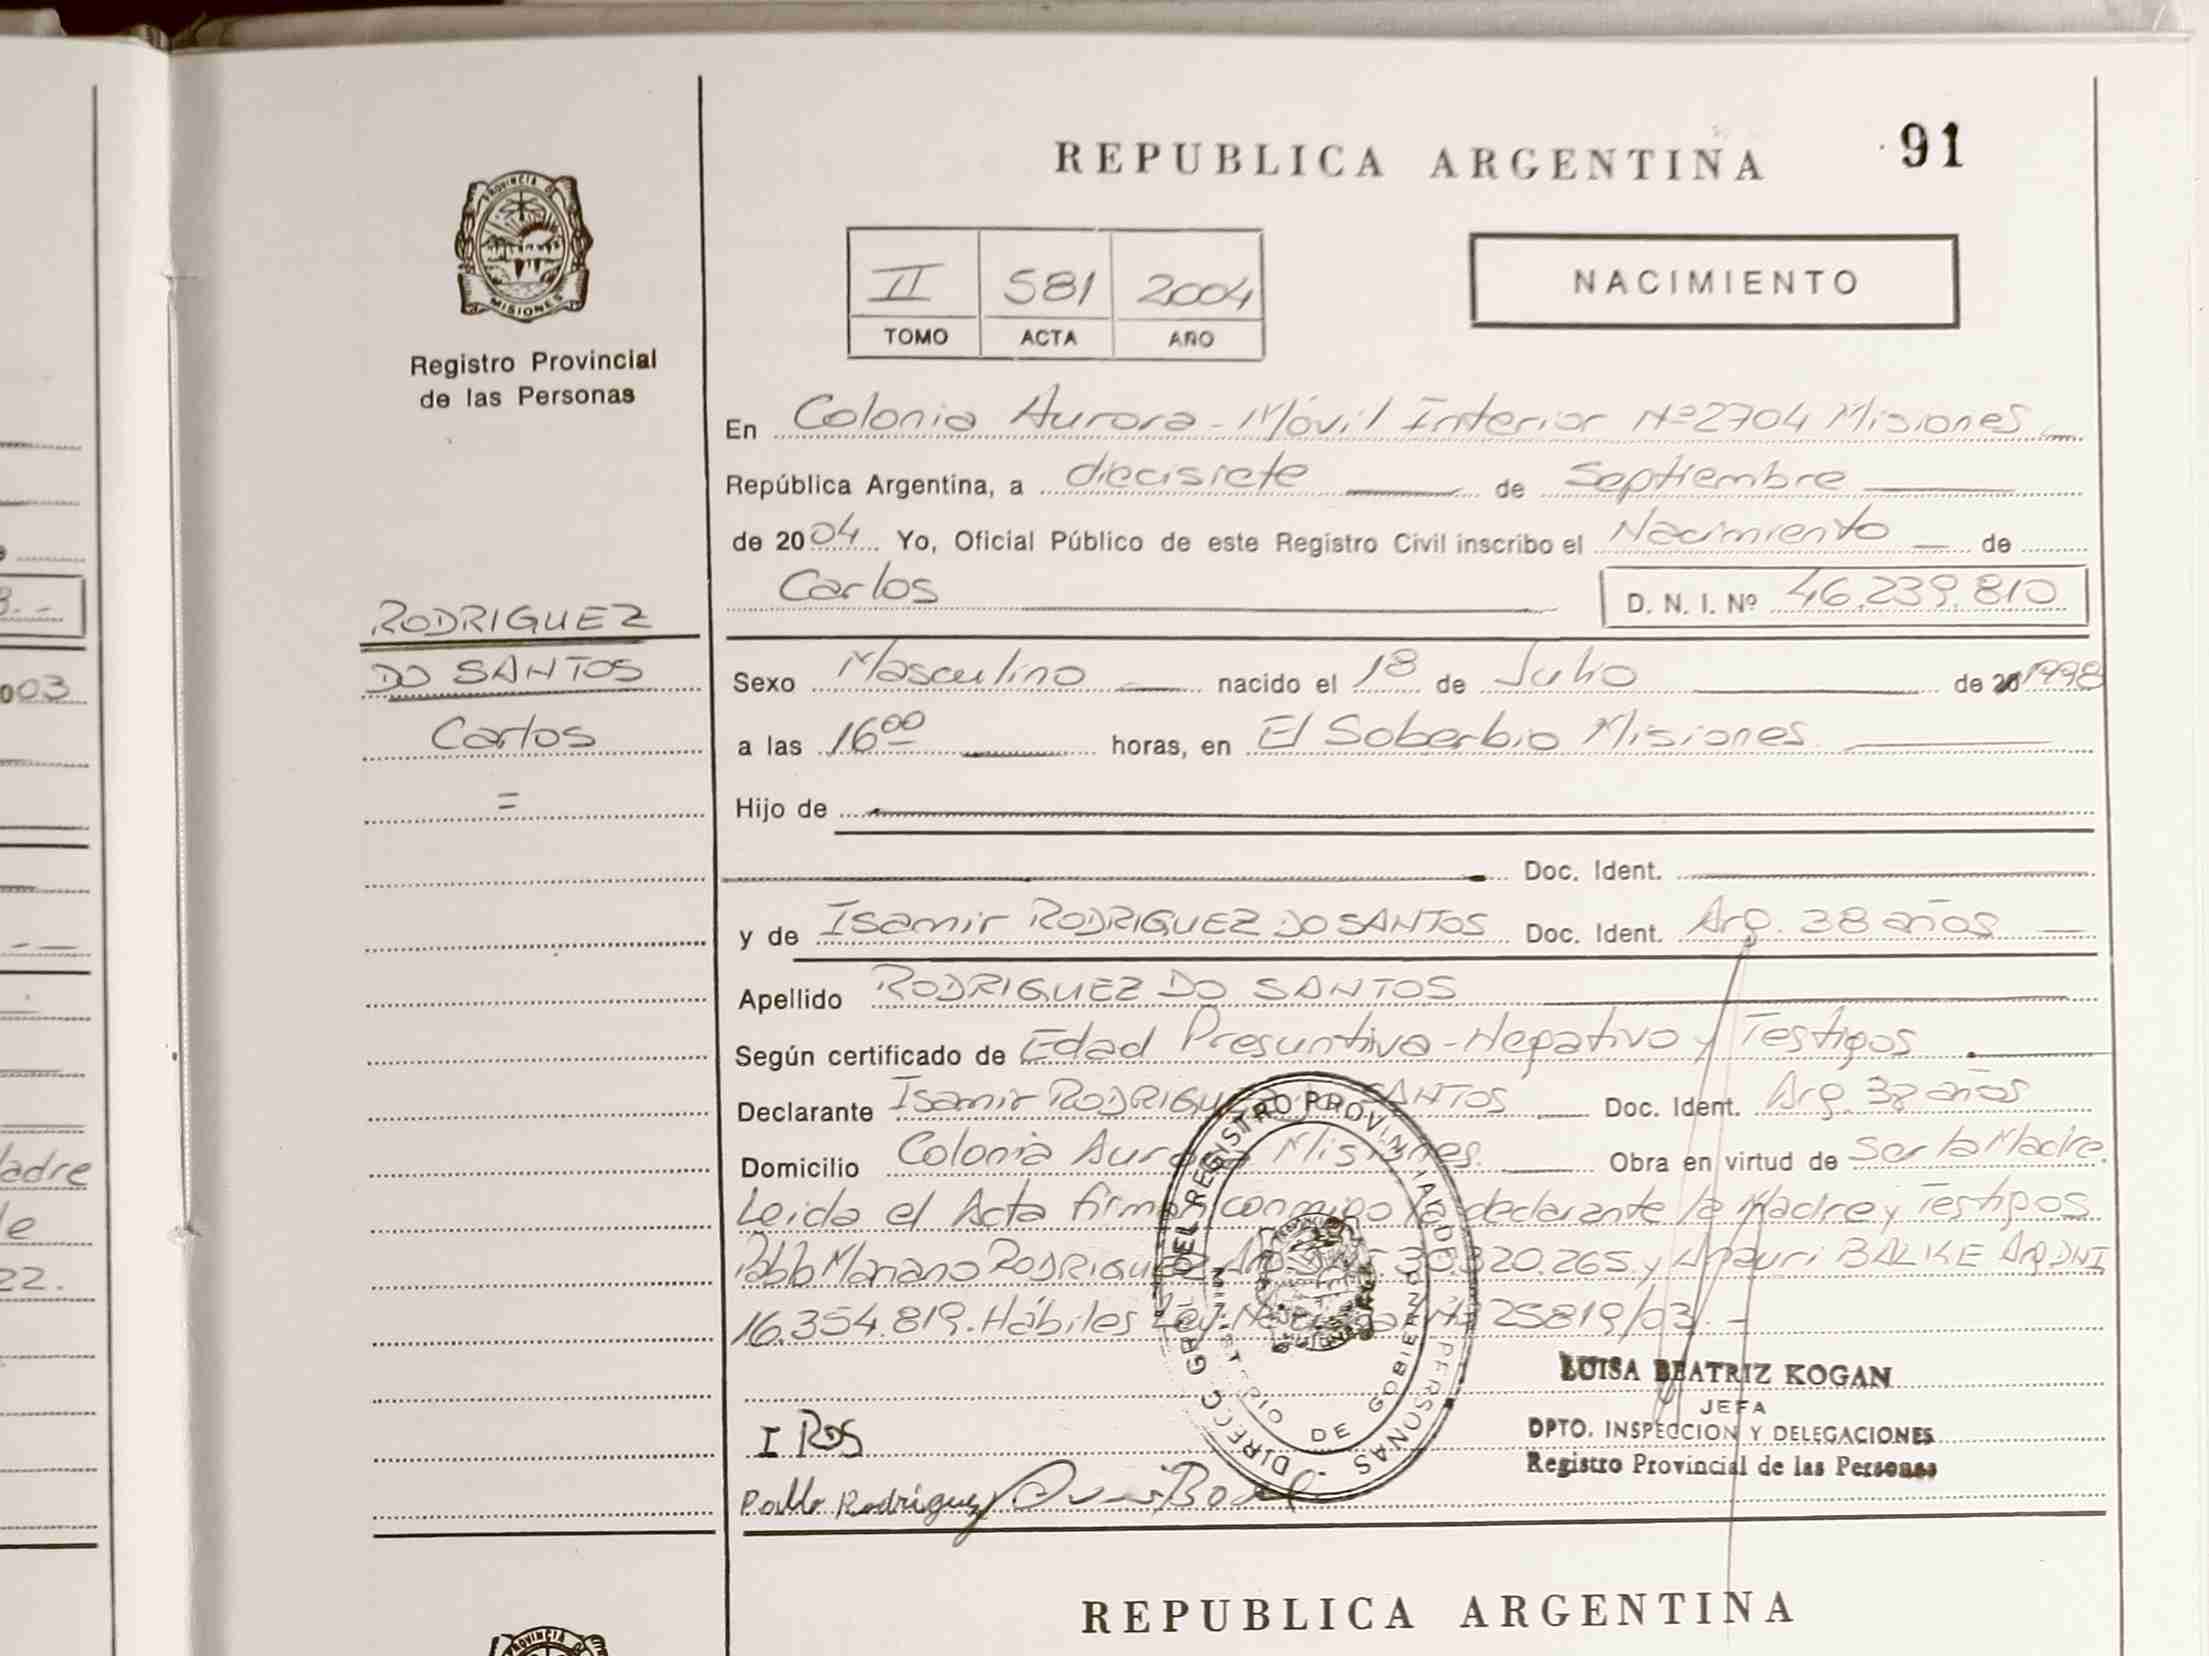 REPUBLICA ARGENTINA
91
PROVINCIA DE
MISIONES
Registro Provincial
de las Personas
II 581 2004
TOMO ACTA AÑO
NACIMIENTO
En Colonia Aurora - Móvil Interior Nº 2704 Misiones
República Argentina, a diecisiete de Septiembre
de 2004 Yo, Oficial Público de este Registro Civil inscribo el Nacimiento de
Carlos D. N. I. Nº 46.239.810
RODRIGUEZ
DO SANTOS
Carlos
=
Sexo Masculino nacido el 18 de Julio de 20 1998
a las 16 00 horas, en El Soberbio Misiones
Hijo de
Doc. Ident.
y de Isamir RODRIGUEZ DO SANTOS Doc. Ident. Arg. 38 años
Apellido RODRIGUEZ DO SANTOS
Según certificado de Edad Presuntiva - Negativo y Testigos
Declarante Isamir RODRIGUEZ SANTOS Doc. Ident. Arg. 38 años
Domicilio Colonia Aurora Misiones. Obra en virtud de Ser la Madre.
Leida el Acta firman conmigo la declarante la Madre y Testigos
Pablo Mariano RODRIGUEZ Arg. 30.320.265 y BALKE Arg DNI
16.354.819. Hábiles Ley Nacional Nº 25819/03. -
DIRECC. GRAL. DEL REGISTRO PROVINCIAL DE PERSONAS
MINISTERIO DE GOBIERNO
LUISA BEATRIZ KOGAN
JEFA
DPTO. INSPECCION Y DELEGACIONES
Registro Provincial de las Personas
I RDS
Pablo Rodriguez
REPUBLICA ARGENTINA
PROVINCIA
003
adre
le
22.